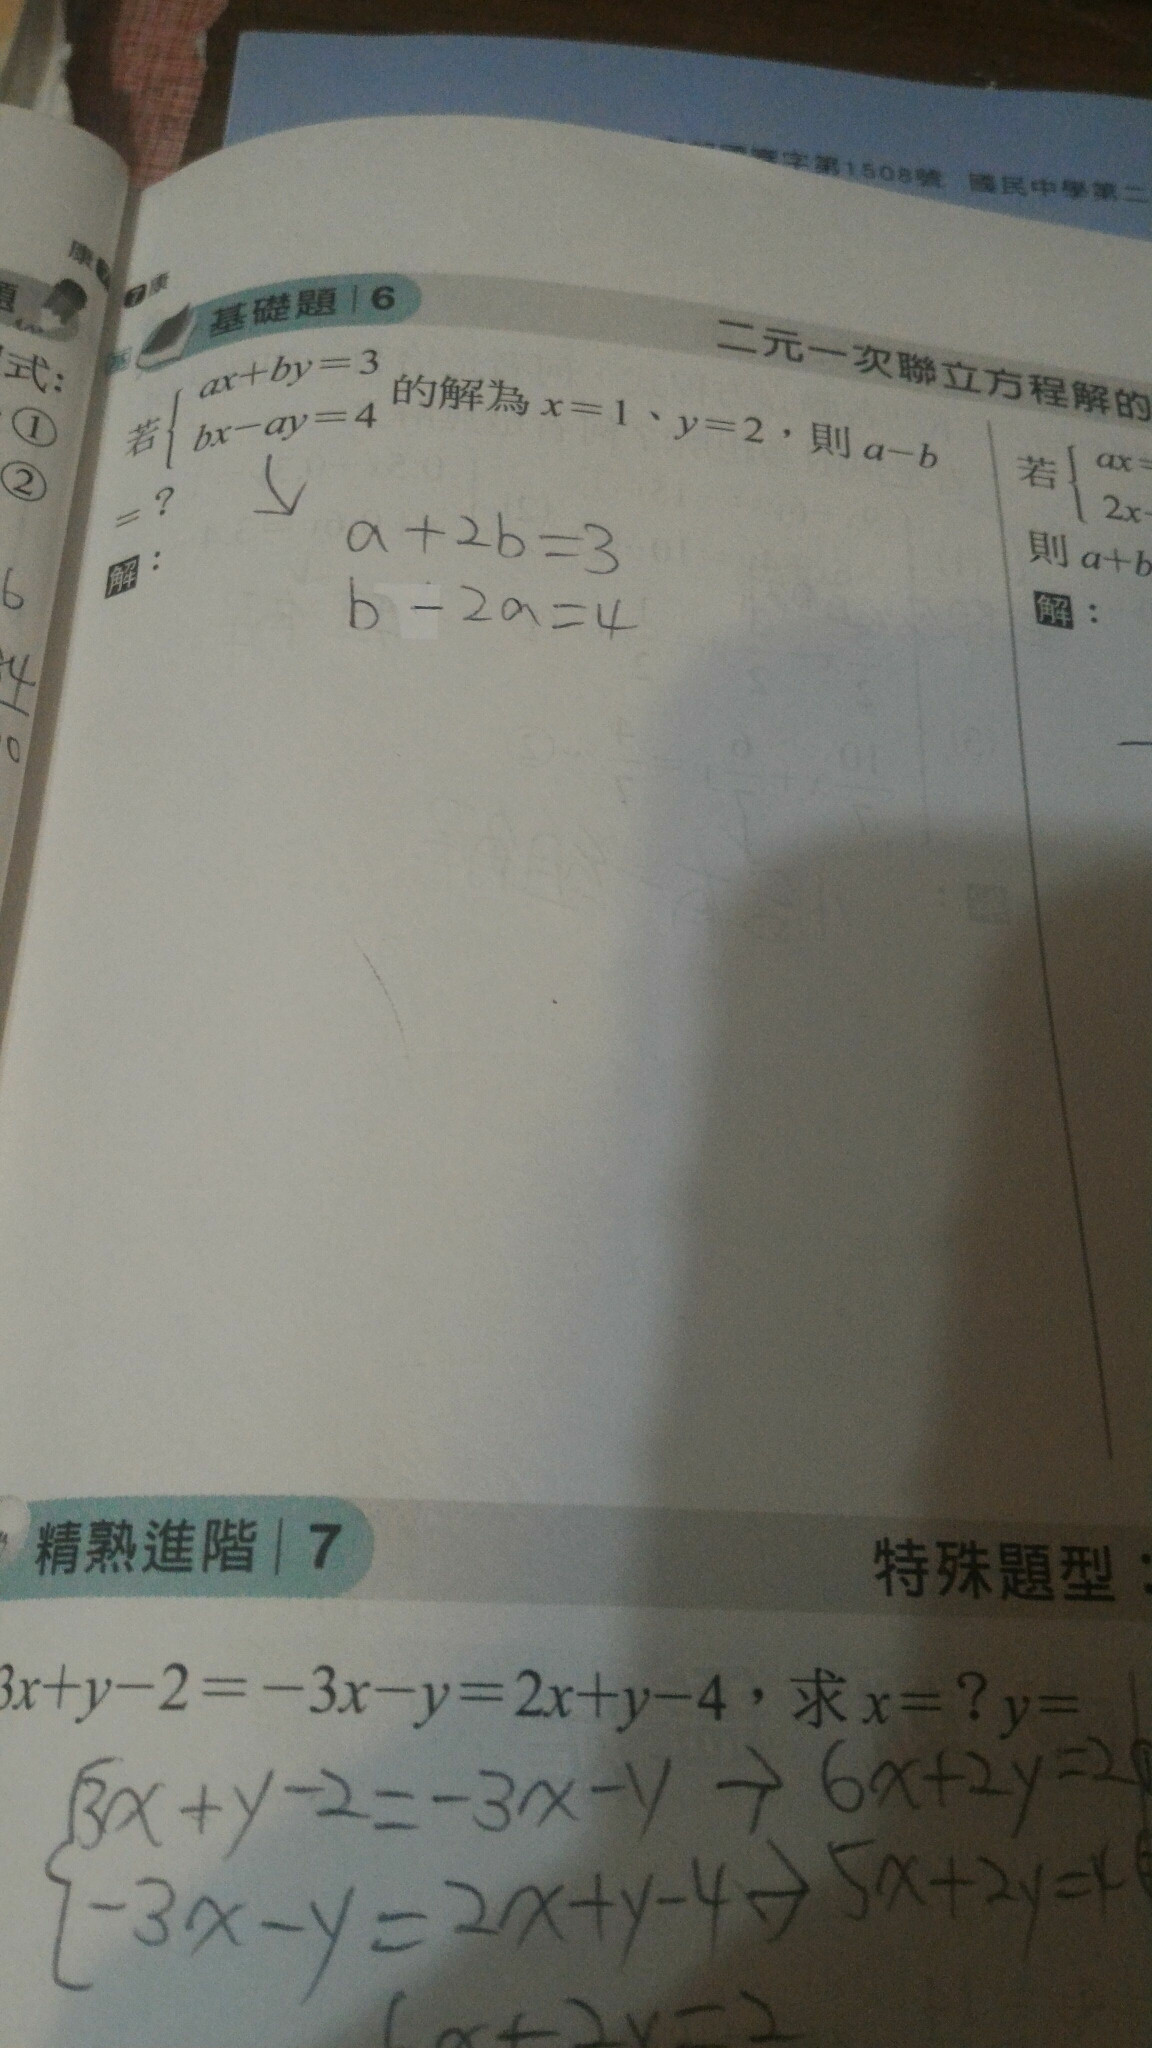 字第1508號 國民中學第二
康
7 康
基礎題 6
二元一次聯立方程解的
式:
①
②
6
4
0
若 { ax+by=3
bx-ay=4 的解為 x=1、y=2,則 a-b
=?
解:
a+2b=3
b-2a=4
若 { ax=
2x-
則 a+b
解:
精熟進階 7
特殊題型:
3x+y-2=-3x-y=2x+y-4,求 x=?y=
3x+y-2=-3x-y → 6x+2y=2
-3x-y=2x+y-4 → 5x+2y=4
6x+2y=2